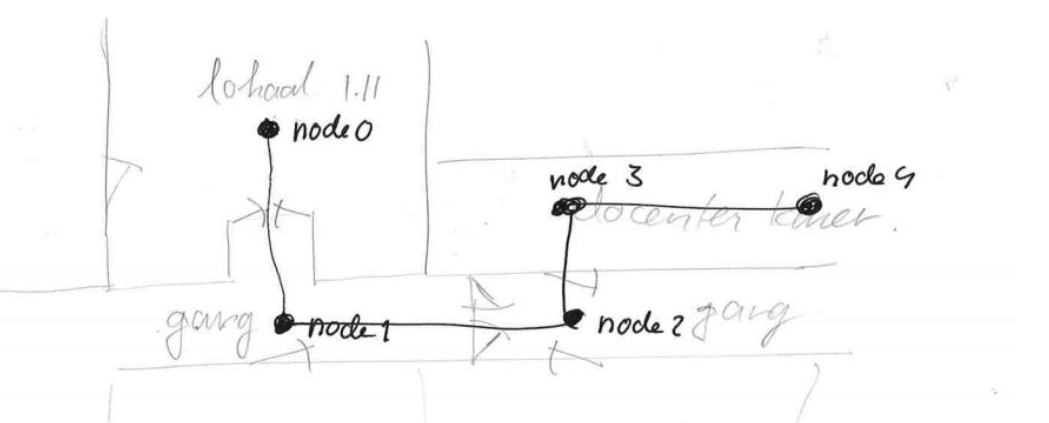 lokaal 1.11
node 0
node 3
node 4
docenten kamer.
gang
node 1
node 2
gang